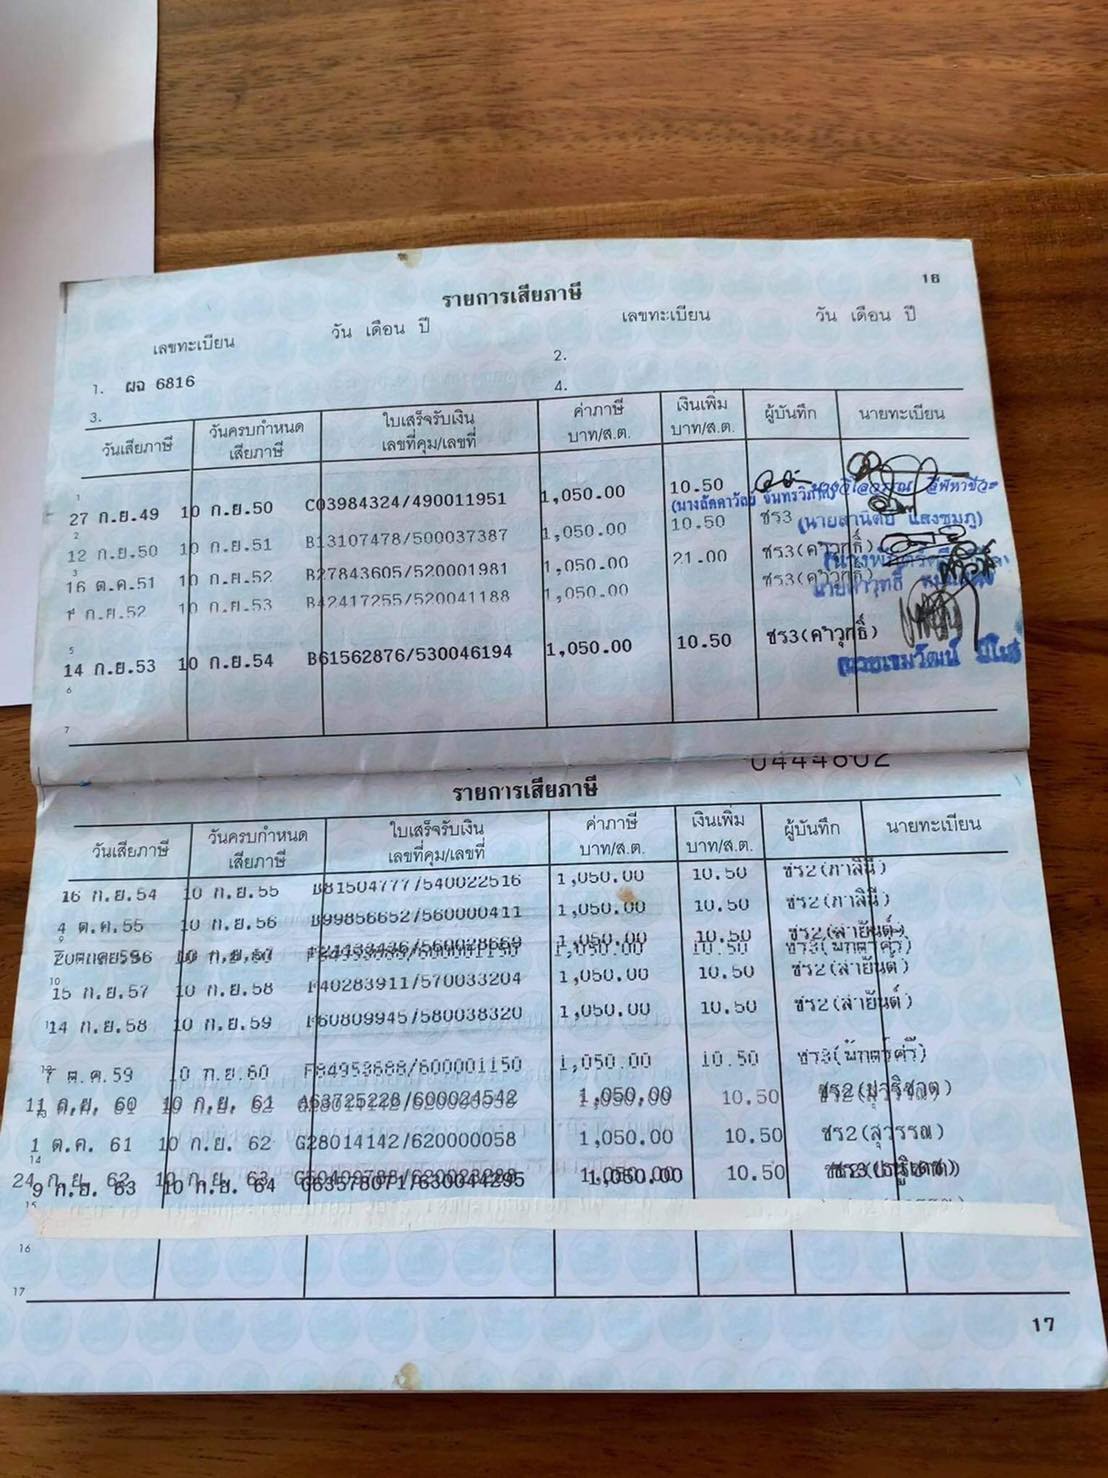 16
รายการเสียภาษี
เลขทะเบียน วัน เดือน ปี เลขทะเบียน วัน เดือน ปี
1. ผฉ 6816 2.
3. 4.
วันเสียภาษี วันครบกำหนดเสียภาษี ใบเสร็จรับเงิน เลขที่คุม/เลขที่ ค่าภาษี บาท/ส.ต. เงินเพิ่ม บาท/ส.ต. ผู้บันทึก นายทะเบียน
1 27 ก.ย.49 10 ก.ย.50 C03984324/490011951 1,050.00 10.50
2 12 ก.ย.50 10 ก.ย.51 B13107478/500037387 1,050.00 10.50 ชร3
(นายสานิตย์ แสงชมภู)
3 16 ต.ค.51 10 ก.ย.52 B27843605/520001981 1,050.00 21.00 ชร3(คำวุฑฒิ์)
1 ก.ย.52 10 ก.ย.53 B42417255/520041188 1,050.00 ชร3(คำวุฑฒิ์)
5 14 ก.ย.53 10 ก.ย.54 B61562876/530046194 1,050.00 10.50 ชร3(คำวุฑฒิ์)
6
7
รายการเสียภาษี
วันเสียภาษี วันครบกำหนดเสียภาษี ใบเสร็จรับเงิน เลขที่คุม/เลขที่ ค่าภาษี บาท/ส.ต. เงินเพิ่ม บาท/ส.ต. ผู้บันทึก นายทะเบียน
16 ก.ย.54 10 ก.ย.55 B81504777/540022516 1,050.00 10.50 ชร2(ภาลินี)
4 ต.ค.55 10 ก.ย.56 B99856652/560000411 1,050.00 10.50 ชร2(ภาลินี)
9 1,050.00 10.50 ชร2(ลายันต์)
10 15 ก.ย.57 10 ก.ย.58 F40283911/570033204 1,050.00 10.50 ชร2(ลายันต์)
14 ก.ย.58 10 ก.ย.59 F60809945/580038320 1,050.00 10.50 ชร2(ลายันต์)
7 ต.ค.59 10 ก.ย.60 F84953688/600001150 1,050.00 10.50 ชร3(พักตร์ศรี)
10 ก.ย. 61 1,050.00 10.50
1 ต.ค. 61 10 ก.ย. 62 G28014142/620000058 1,050.00 10.50 ชร2(สุวรรณ)
14
9 ก.ย. 63 10 ก.ย. 64 G63578071/630044295 1,050.00 10.50
15
16
17
17